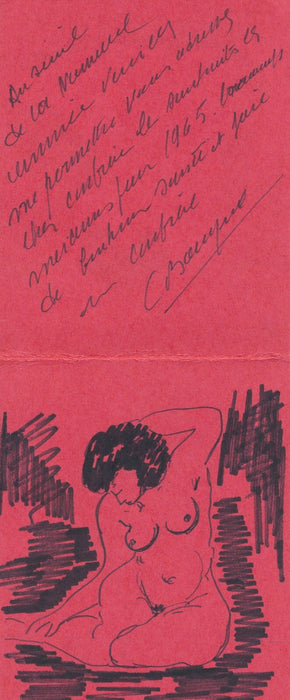 Au seuil
de la nouvelle
année veuillez
me permettre vous adresser
cher confrère les souhaits les
meilleurs pour 1965. beaucoup
de bonheur santé et joie
confrère